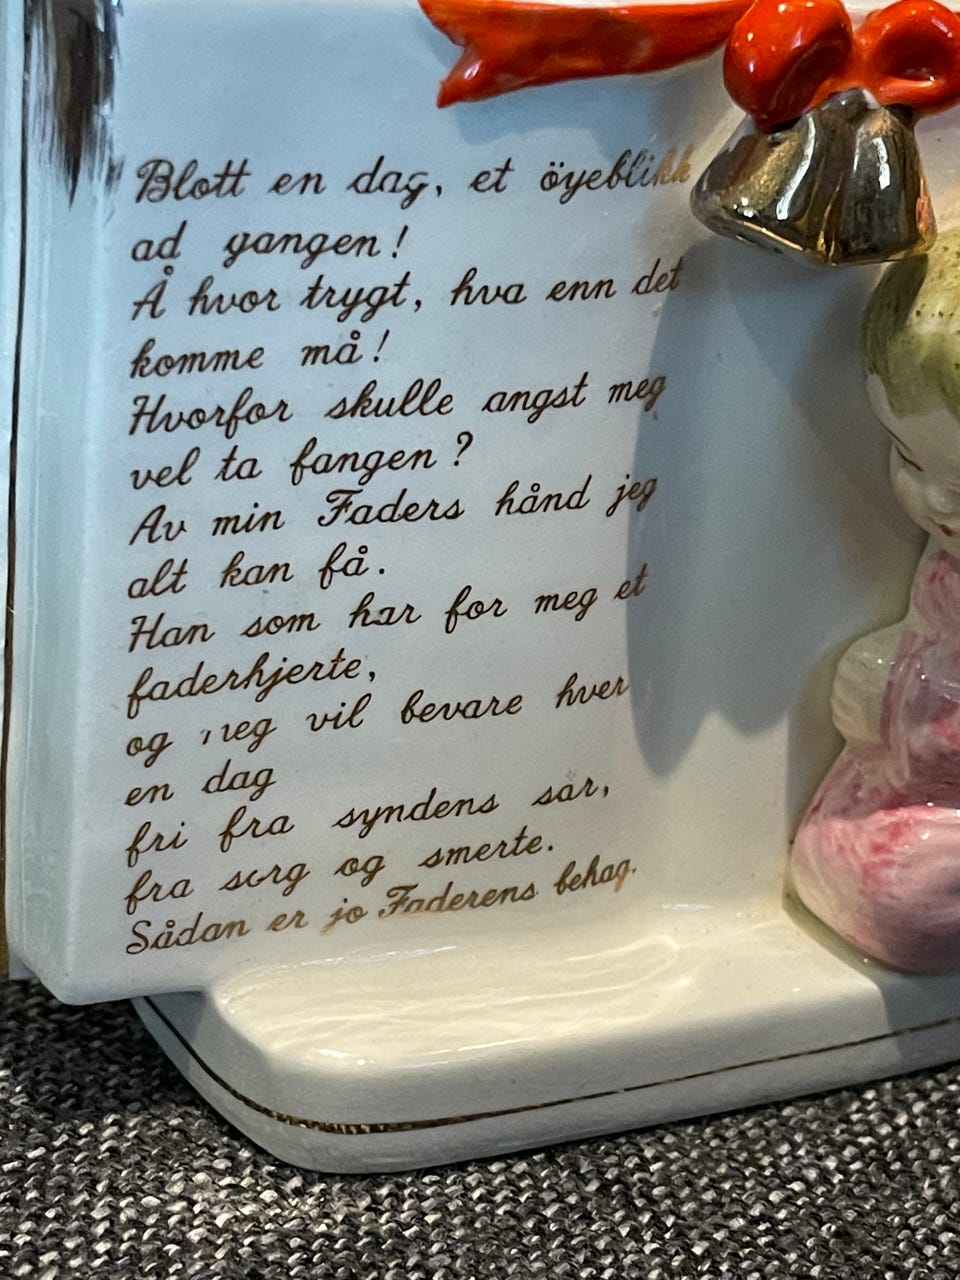 Blott en dag, et öyeblikk
ad gangen!
Å hvor trygt, hva enn det
komme må!
Hvorfor skulle angst meg
vel ta fangen?
Av min Faders hånd jeg
alt kan få.
Han som har for meg et
faderhjerte,
og meg vil bevare hver
en dag
fri fra syndens sår,
fra sorg og smerte.
Sådan er jo Faderens behag.